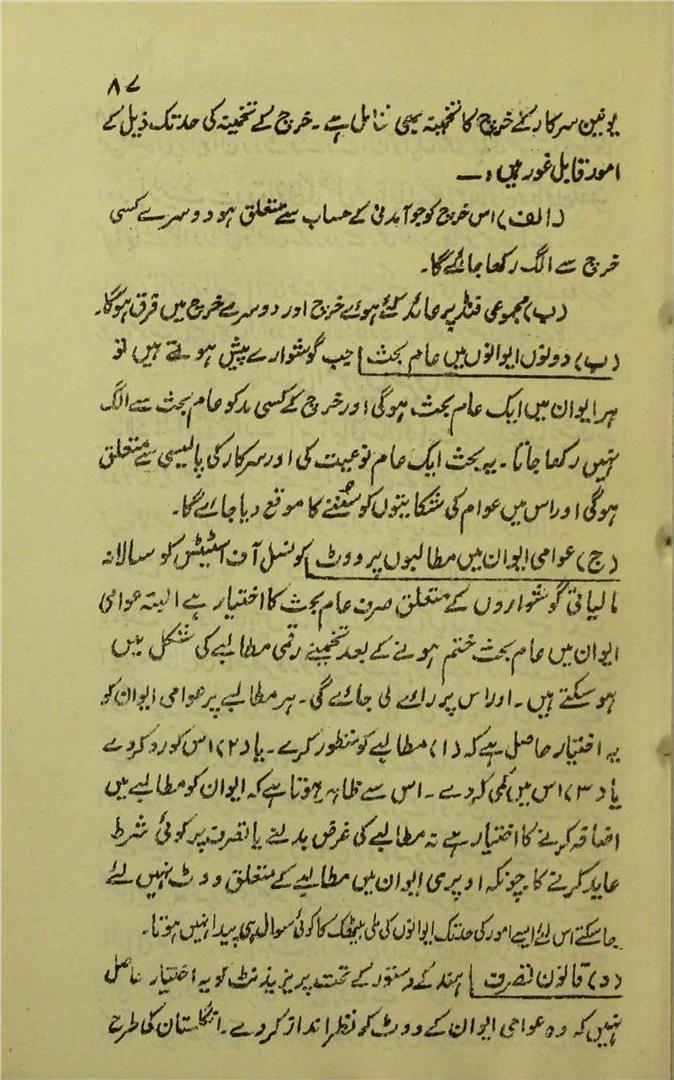 ۸۷
یونین سرکار کے خرچ کا تخمینہ بھی شامل ہے۔ خرچ کے تخمینہ کی حد تک ذیل کے
امور قابل غور ہیں :۔
(الف) اس خرچ کو جو آمدنی کے حساب سے متعلق ہو دوسرے کسی
خرچ سے الگ رکھا جائے گا۔
(ب) مجموعی فنڈ پر عائد کئے ہوئے خرچ اور دوسرے خرچ میں فرق ہوگا۔
(ب) دونوں ایوانوں میں عام بحث جب گوشوارے پیش ہوتے ہیں تو
ہر ایوان میں ایک عام بحث ہوگی اور خرچ کے کسی مد کو عام بحث سے الگ
نہیں رکھا جاتا۔ یہ بحث ایک عام نوعیت کی اور سرکار کی پالیسی سے متعلق
ہوگی اور اس میں عوام کی شکایتوں کو سننے کا موقع دیا جائے گا۔
(ج) عوامی ایوان میں مطالبوں پر ووٹ کونسل آف اسٹیٹس کو سالانہ
مالیاتی گوشواروں کے متعلق صرف عام بحث کا اختیار ہے البتہ عوامی
ایوان میں عام بحث ختم ہونے کے بعد تخمینے رقمی مطالبے کی شکل میں
ہو سکتے ہیں۔ اور اس پر رائے لی جائے گی۔ ہر مطالبے پر عوامی ایوان کو
یہ اختیار حاصل ہے کہ (۱) مطالبے کو منظور کرے۔ یا (۲) اس کو رد کر دے
یا (۳) اس میں کمی کر دے۔ اس سے ظاہر ہوتا ہے کہ ایوان کو مطالبے میں
اضافہ کرنے کا اختیار ہے نہ مطالبے کی غرض بدلنے یا تصرف پر کوئی شرط
عاید کرنے کا۔ چونکہ اوپری ایوان میں مطالبے کے متعلق ووٹ نہیں لئے
جا سکتے اس لئے ایسے امور کی حد تک ایوانوں کی ملی بیٹھک کا کوئی سوال ہی پیدا نہیں ہوتا۔
(د) قانون تصرف ہند کے دستور کے تحت پریزیڈنٹ کو یہ اختیار حاصل
نہیں کہ وہ عوامی ایوان کے ووٹ کو نظر انداز کر دے۔ انگلستان کی طرح